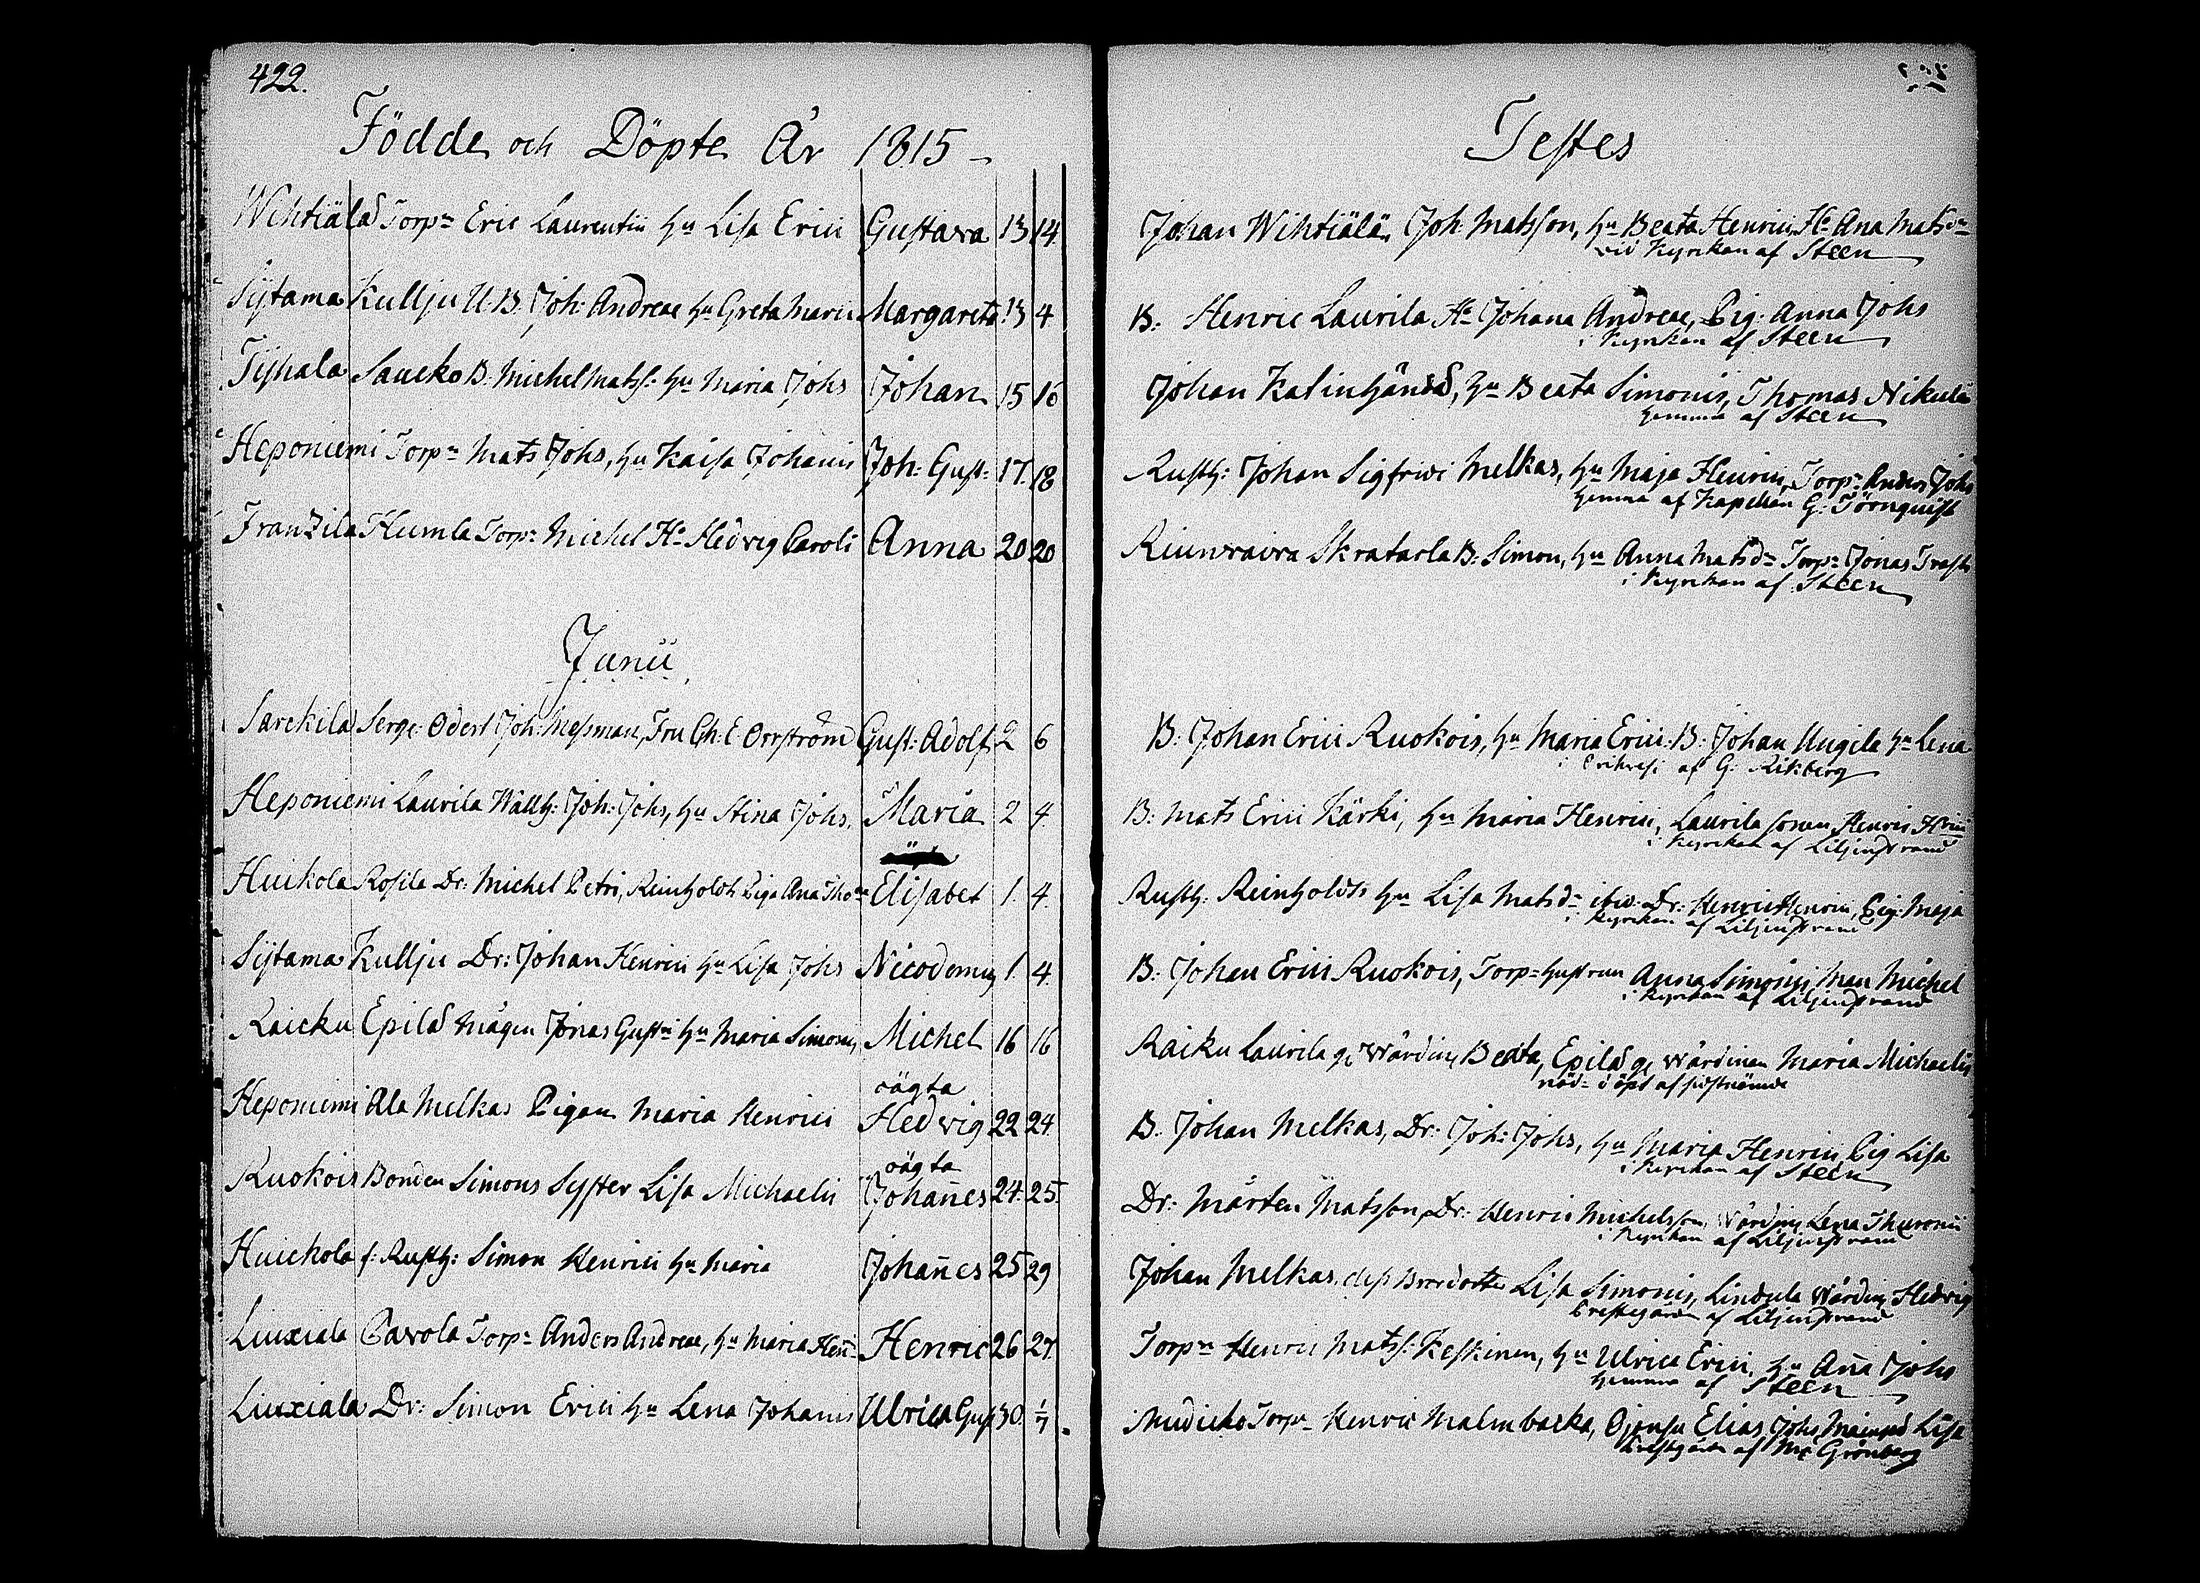 422.
Födde och Döpte År 1815
Wihtiälä Torpn Eric Laurentii hu Lisa Erici Gustava 13 14
Sijtama Kullju U.B. Joh: Andreae hu Greta Marci Margareta 13 4
Tijhala Saucko B. Michel Matss: hu Maria Johs Johan 15 16
Heponiemi Torpn Mats Johs, hu Kaisa Johanis Joh: Gust: 17. 18
Franzila Humla Torpn Michel Ha Hedvig Caroli Anna 20 20
Junii
Sarckila Serge: Joh: Messman, Fru Ch: E Orrström Gust: Adolf 2 6
Heponiemi Laurila Joh: Johs, hu Stina Johs. Maria 2 4.
Huickola Rosila Dr: Michel Petri, Reinholds Piga Ana Elisabet 1. 4.
Sijtama Kullju Dr: Johan Henrici hu Lisa Johs Nicodemus 1. 4.
Raicku Epilä Mågen Jonas Gusti hu Maria Simons, Michel 16 16
oägta
Heponiemi Ala Melkas Pigan Maria Henrici Hedvig 22 24.
oägta
Ruokois Bonden Simons Syster Lisa Michaelis Johañes 24. 25.
Huickola f: Rusth: Simon Henrici hu Maria Johañes 25 29
Liuxiala Pavola Torpn Anders Andreae, hu Maria Henric 26 27.
Liuxiala Dr: Simon Erici hu Lena Johanis Ulrica Gust 30. 1/7.
Testes
Johan Wihtiälä, Joh: Matsson, hu Beata Henrici, Ha Ana Matsdr
vid Kyrckan af Steen
B: Henric Laurila Ha Johana Andreae, Pig: Anna Johs
i Kyrckan af Steen
Johan Kalinhänd, hu Beata Simonis, Thomas Nikula
hemma af Steen
Rusth: Johan Sigfridi Melkas, hu Maja Henrici, Torpn Anders Johs
hemma af Kapellan G: Törnquist
Skratarla B: Simon, hu Anna Matsdr Torpn Jonas
i Kyrckan af Steen
B: Johan Erici Ruokois, hu Maria Erici: B: Johan Uugila hu Lena
i af G: Rikberg
B: Mats Erici Kärki, hu Maria Henrici, Laurila sonen Henric
i Kyrckan af Liljenstrand
Rusth: Reinholds hu Lisa Matsdr Dr: Henric Henrici, Pig: Maja
i Kyrckan af Liljenstrand
B: Johan Erici Ruokois, Torp: hustrun Anna Simonis, Man Michel
i Kyrckan af Liljenstrand
Raiku Laurila ge Wärdin, Beata, Epilä ge Wärdinan Maria Michaelis
nöd döpt af sistnämde
B: Johan Melkas, Dr: Joh: Johs, hu Maria Henrici Pig Lisa
i Kyrckan af Steen
Dr: Mårten Matsson, Dr: Henric Michelsson, Wärdin, Lena Thuronis
i Kyrckan af Liljenstrand
Johan Melkas, dess Brordotter Lisa Simonis, Lindula Wärdin Hedvig
Prestegården af Liljenstrand
Torpn Henric Matss: Keskinen, hu Ulrica Erici, hu Aña Johs
hemma af Steen
Torpn Henric Malmbacka, Elias Johs Lisa
Prestgården af Mr Grönberg